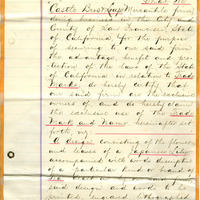 Castle Bro
doing business in the City and
County of San Francisco, State
of California for the purpose
of securing to our said firm
the advantage benefit and pro-
tection of the laws of the State
of California in relation to Trade
Marks do hereby certify that
our said firm are the exclusive
owners of and do hereby claim
the exclusive use of the Trade
Mark and Name hereinafter set
forth, viz:
A design consisting of the flower
and leaves of a Japanese
accompanied with words descriptive
of a particular kind or brand of
Tea
said design and words to be
printed, engraved lithographed